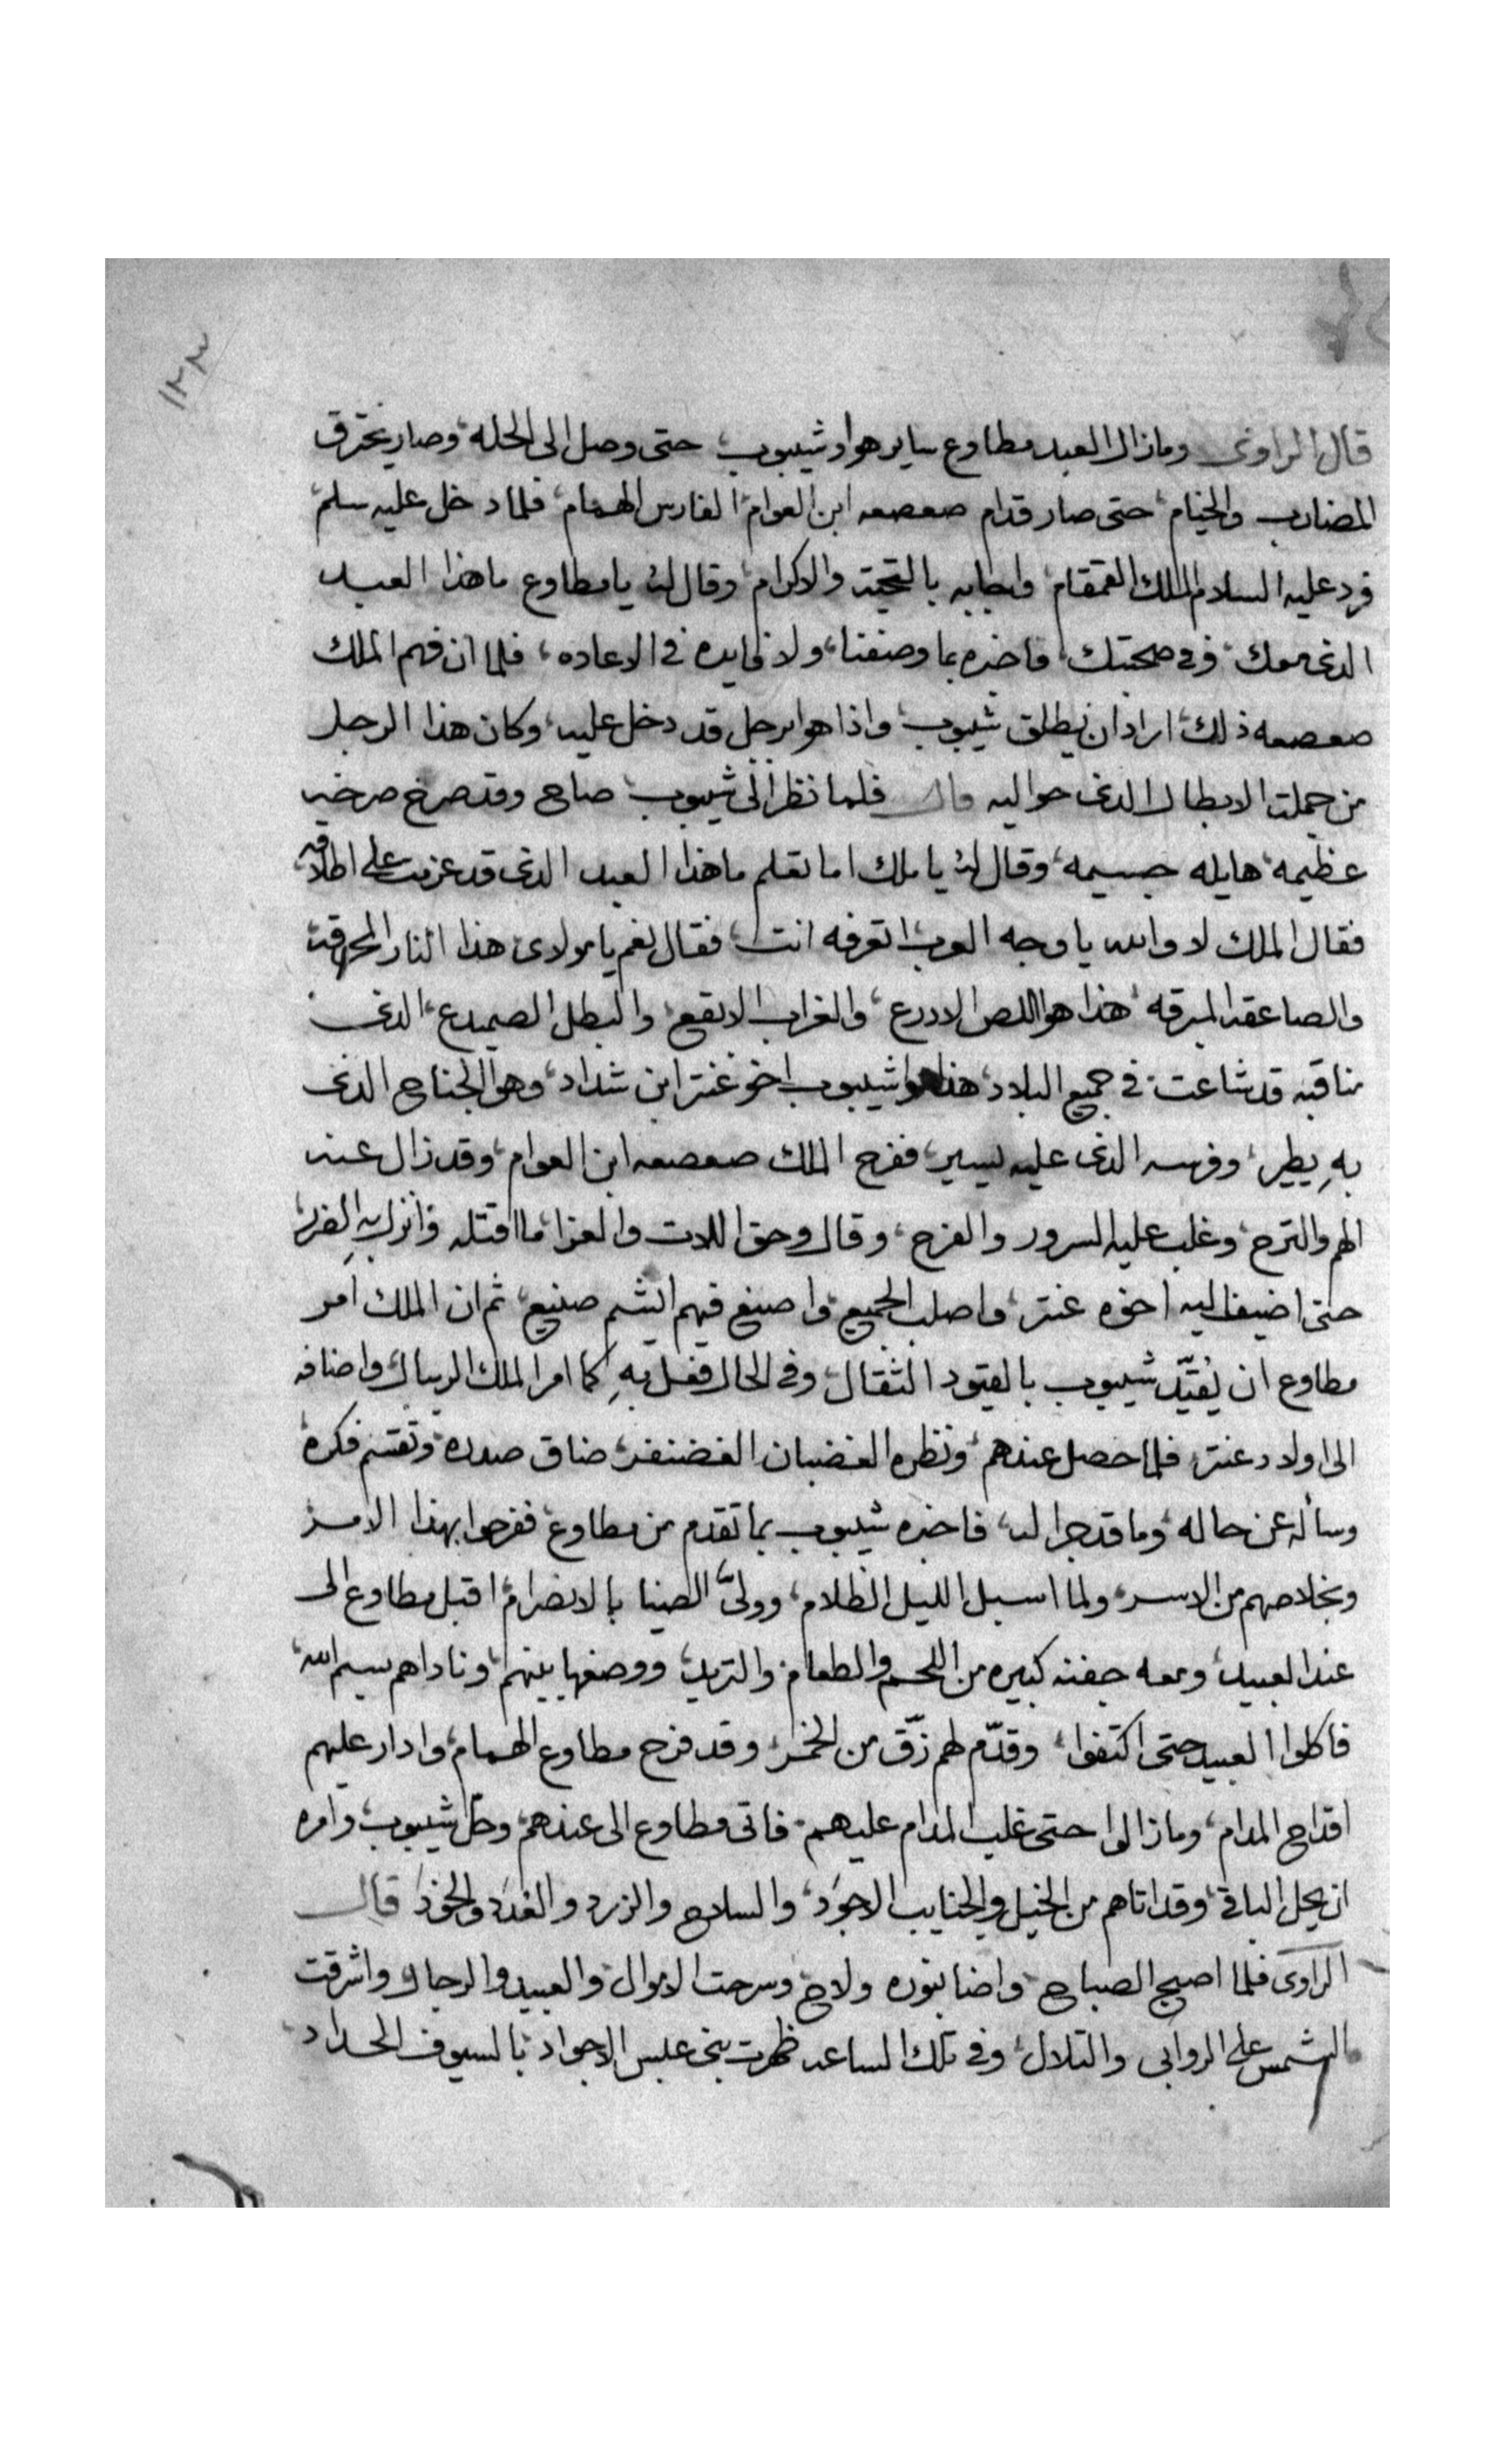 ١٢٣
قال الراوى وما زال العبد مطاوع ساير هو وشيبوب، حتى وصل الى الحله، وصار يخترق
المضارب والخيام، حتى صار قدام صعصعه ابن العوام، الفارس الهمام، فلما دخل عليه سلم،
فرد عليه السلام الملك القمقام، واجابه بالتحية والاكرام، وقال له يا مطاوع ما هذا العبد
الذى معك، وفى صحبتك، فاخبره بما وصفنا، ولا فايده فى الاعاده، فلما ان فهم الملك
صعصعه ذلك، اراد ان يطلق شيبوب، واذا هو برجل قد دخل عليه، وكان هذا الرجل
من جملت الابطال الذى حواليه قال فلما نظر الى شيبوب صاح وقد صرخ صرخه
عظيمه، هايله جسيمه، وقال له يا ملك اما تعلم ما هذا العبد الذى قد عزمت على اطلاقه
فقال الملك لا والله يا وجه العرب اتعرفه انت، فقال نعم يا مولاى هذا النار المحرقة
والصاعقه المبرقه، هذا هو اللص الادرع، والغراب الابقع، والبطل الصميدع، الذى
مناقبه قد شاعت فى جميع البلاد، هذا هو شيبوب اخو عنتر ابن شداد، وهو الجناح الذى
بهِ يطير، وفرسه الذى عليه يسير، ففرح الملك صعصعه ابن العوام، وقد زال عنه
الهم والترح، وغلب عليه السرور والفرح، وقال وحق اللات والعزا ما اقتله وانزل بهِ الضرر
حتى اضيف اليه اخوه عنتر، واصلب الجميع، واصنع فيهم ايشم صنيع، ثم ان الملك امر
مطاوع ان يُقيّد شيبوب بالقيود الثقال، وفى الحال فعل بهِ كما امر الملك الريبال، واضافه
الى اولاد عنتر، فلما حصل عندهم، ونظره الغضبان الغضنفر، ضاق صدره، وتقسم فكره
وسأله عن حاله، وما قد جرا له، فاخبره شيبوب بما تقدم من مطاوع، ففرحوا بهذا الامر
وبخلاصهم من الاسر، ولما اسبل الليل الظلام، وولىّ الضيا بالانصرام، اقبل مطاوع الى
عند العبيد، ومعه جفنه كبيره من اللحم والطعام والتريد، ووضعها بينهم، وناداهم بسم الله،
فاكلوا العبيد حتى اكتفوا، وقدّم لهم زّق من الخمر، وقد فرح مطاوع الهمام، وادار عليهم
اقداح المدام، وما زالوا حتى غلب المدام عليهم، فاتى مطاوع الى عندهم، وحلّ شيبوب، وامره
ان يحل الباقى، وقد اتاهم من الخيل والجنايب الاجود، والسلاح والزرد والعدد والخود قال
الراوى فلما اصبح الصباح، واضا بنوره ولاح، وسرحت الاموال، والعبيد والرجال واشرقت
الشمس على الروابى والتلال، وفى تلك الساعه ظهرت بنى عبس الاجواد بالسيوف الحداد